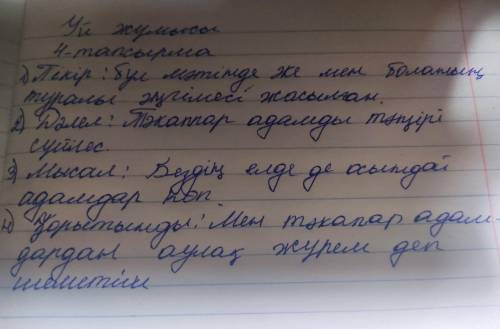 Үй жұмысы
4-тапсырма
1) Пікір: бұл мәтінде же мен баланың
туралы әңгімесі жасылған.
2) Дәлел: Тәкаппар адамды тәңірі
сүймес.
3) Мысал: Біздің елде де осындай
адамдар көп.
4) Қорытынды: Мен тәкапар адам-
дардан аулақ жүрем деп
шештім